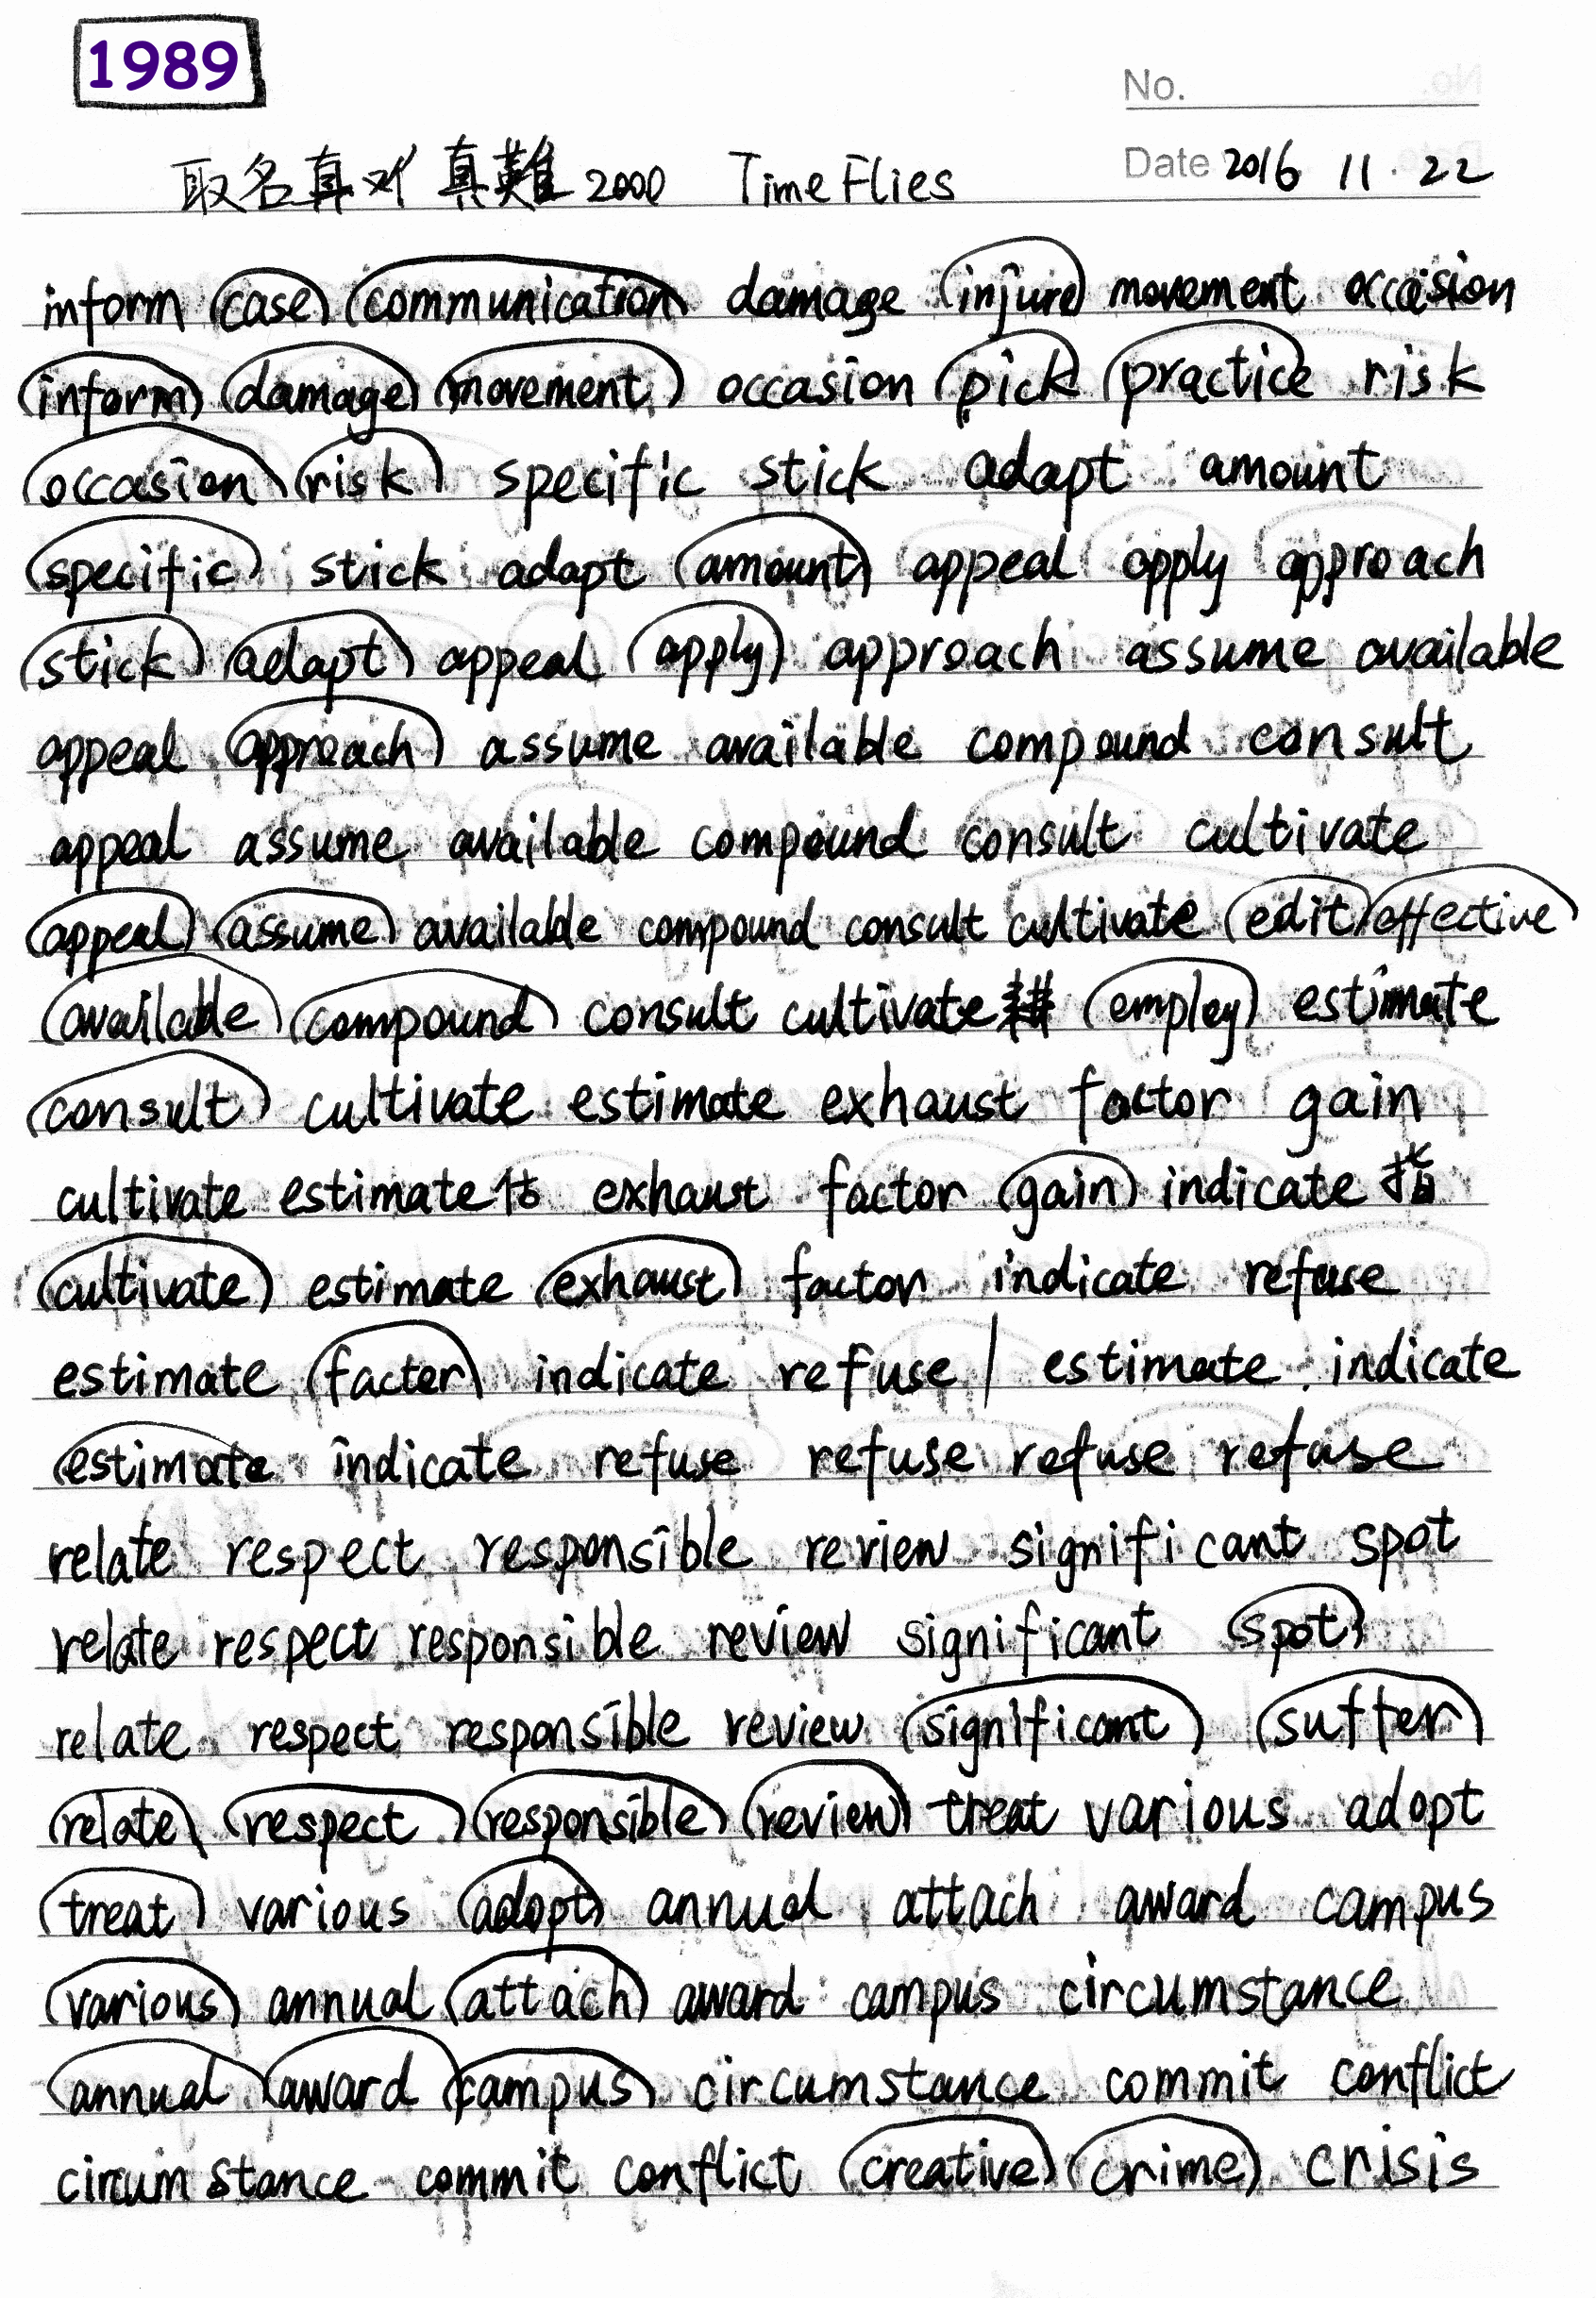 1989
No.
取名真对真難2000 Time Flies Date 2016 11.22
inform case communication damage injure movement occasion
inform damage movement occasion pick practice risk
occasion risk specific stick adapt amount
specific stick adapt amount appeal apply approach
stick adapt appeal apply approach assume available
appeal approach assume available compound consult
appeal assume available compound consult cultivate
appeal assume available compound consult cultivate edit effective
available compound consult cultivate employ estimate
consult cultivate estimate exhaust factor gain
cultivate estimate估 exhaust factor gain indicate 指
cultivate estimate exhaust factor indicate refuse
estimate factor indicate refuse / estimate indicate
estimate indicate refuse refuse refuse refuse
relate respect responsible review significant spot
relate respect responsible review significant spot
relate respect responsible review significant suffer
relate respect responsible review treat various adopt
treat various adopt annual attach award campus
various annual attach award campus circumstance
annual award campus circumstance commit conflict
circumstance commit conflict creative crime crisis